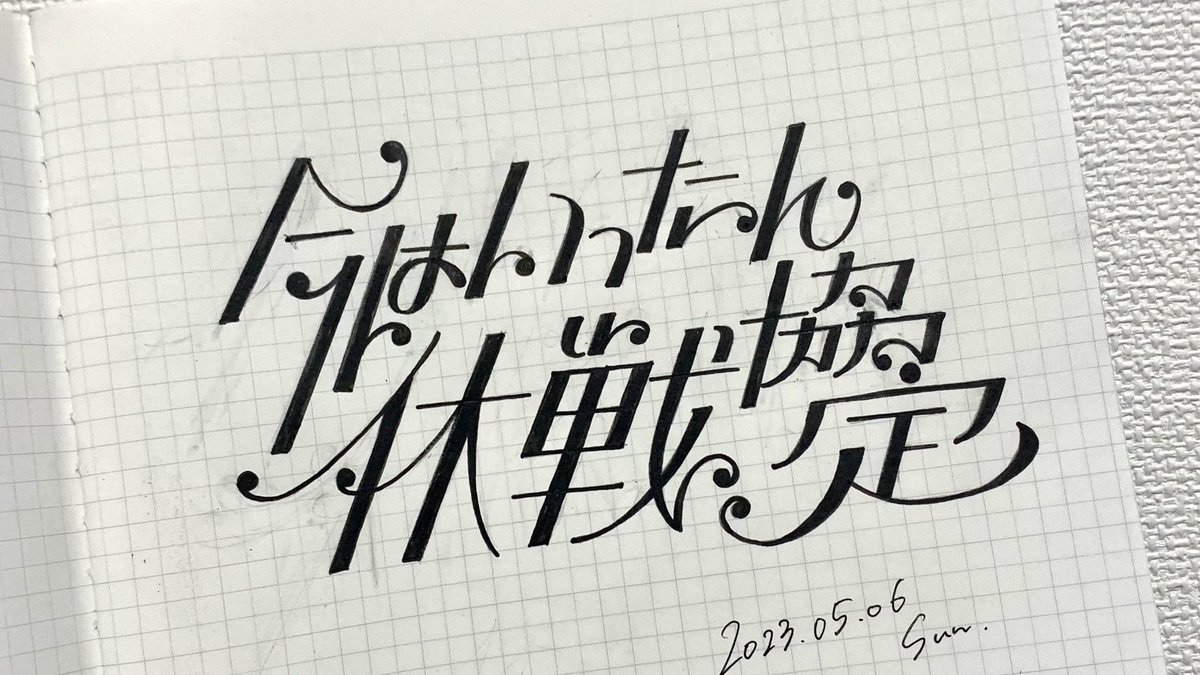 今はいったん
休戦協定
2023.05.06
Sun.